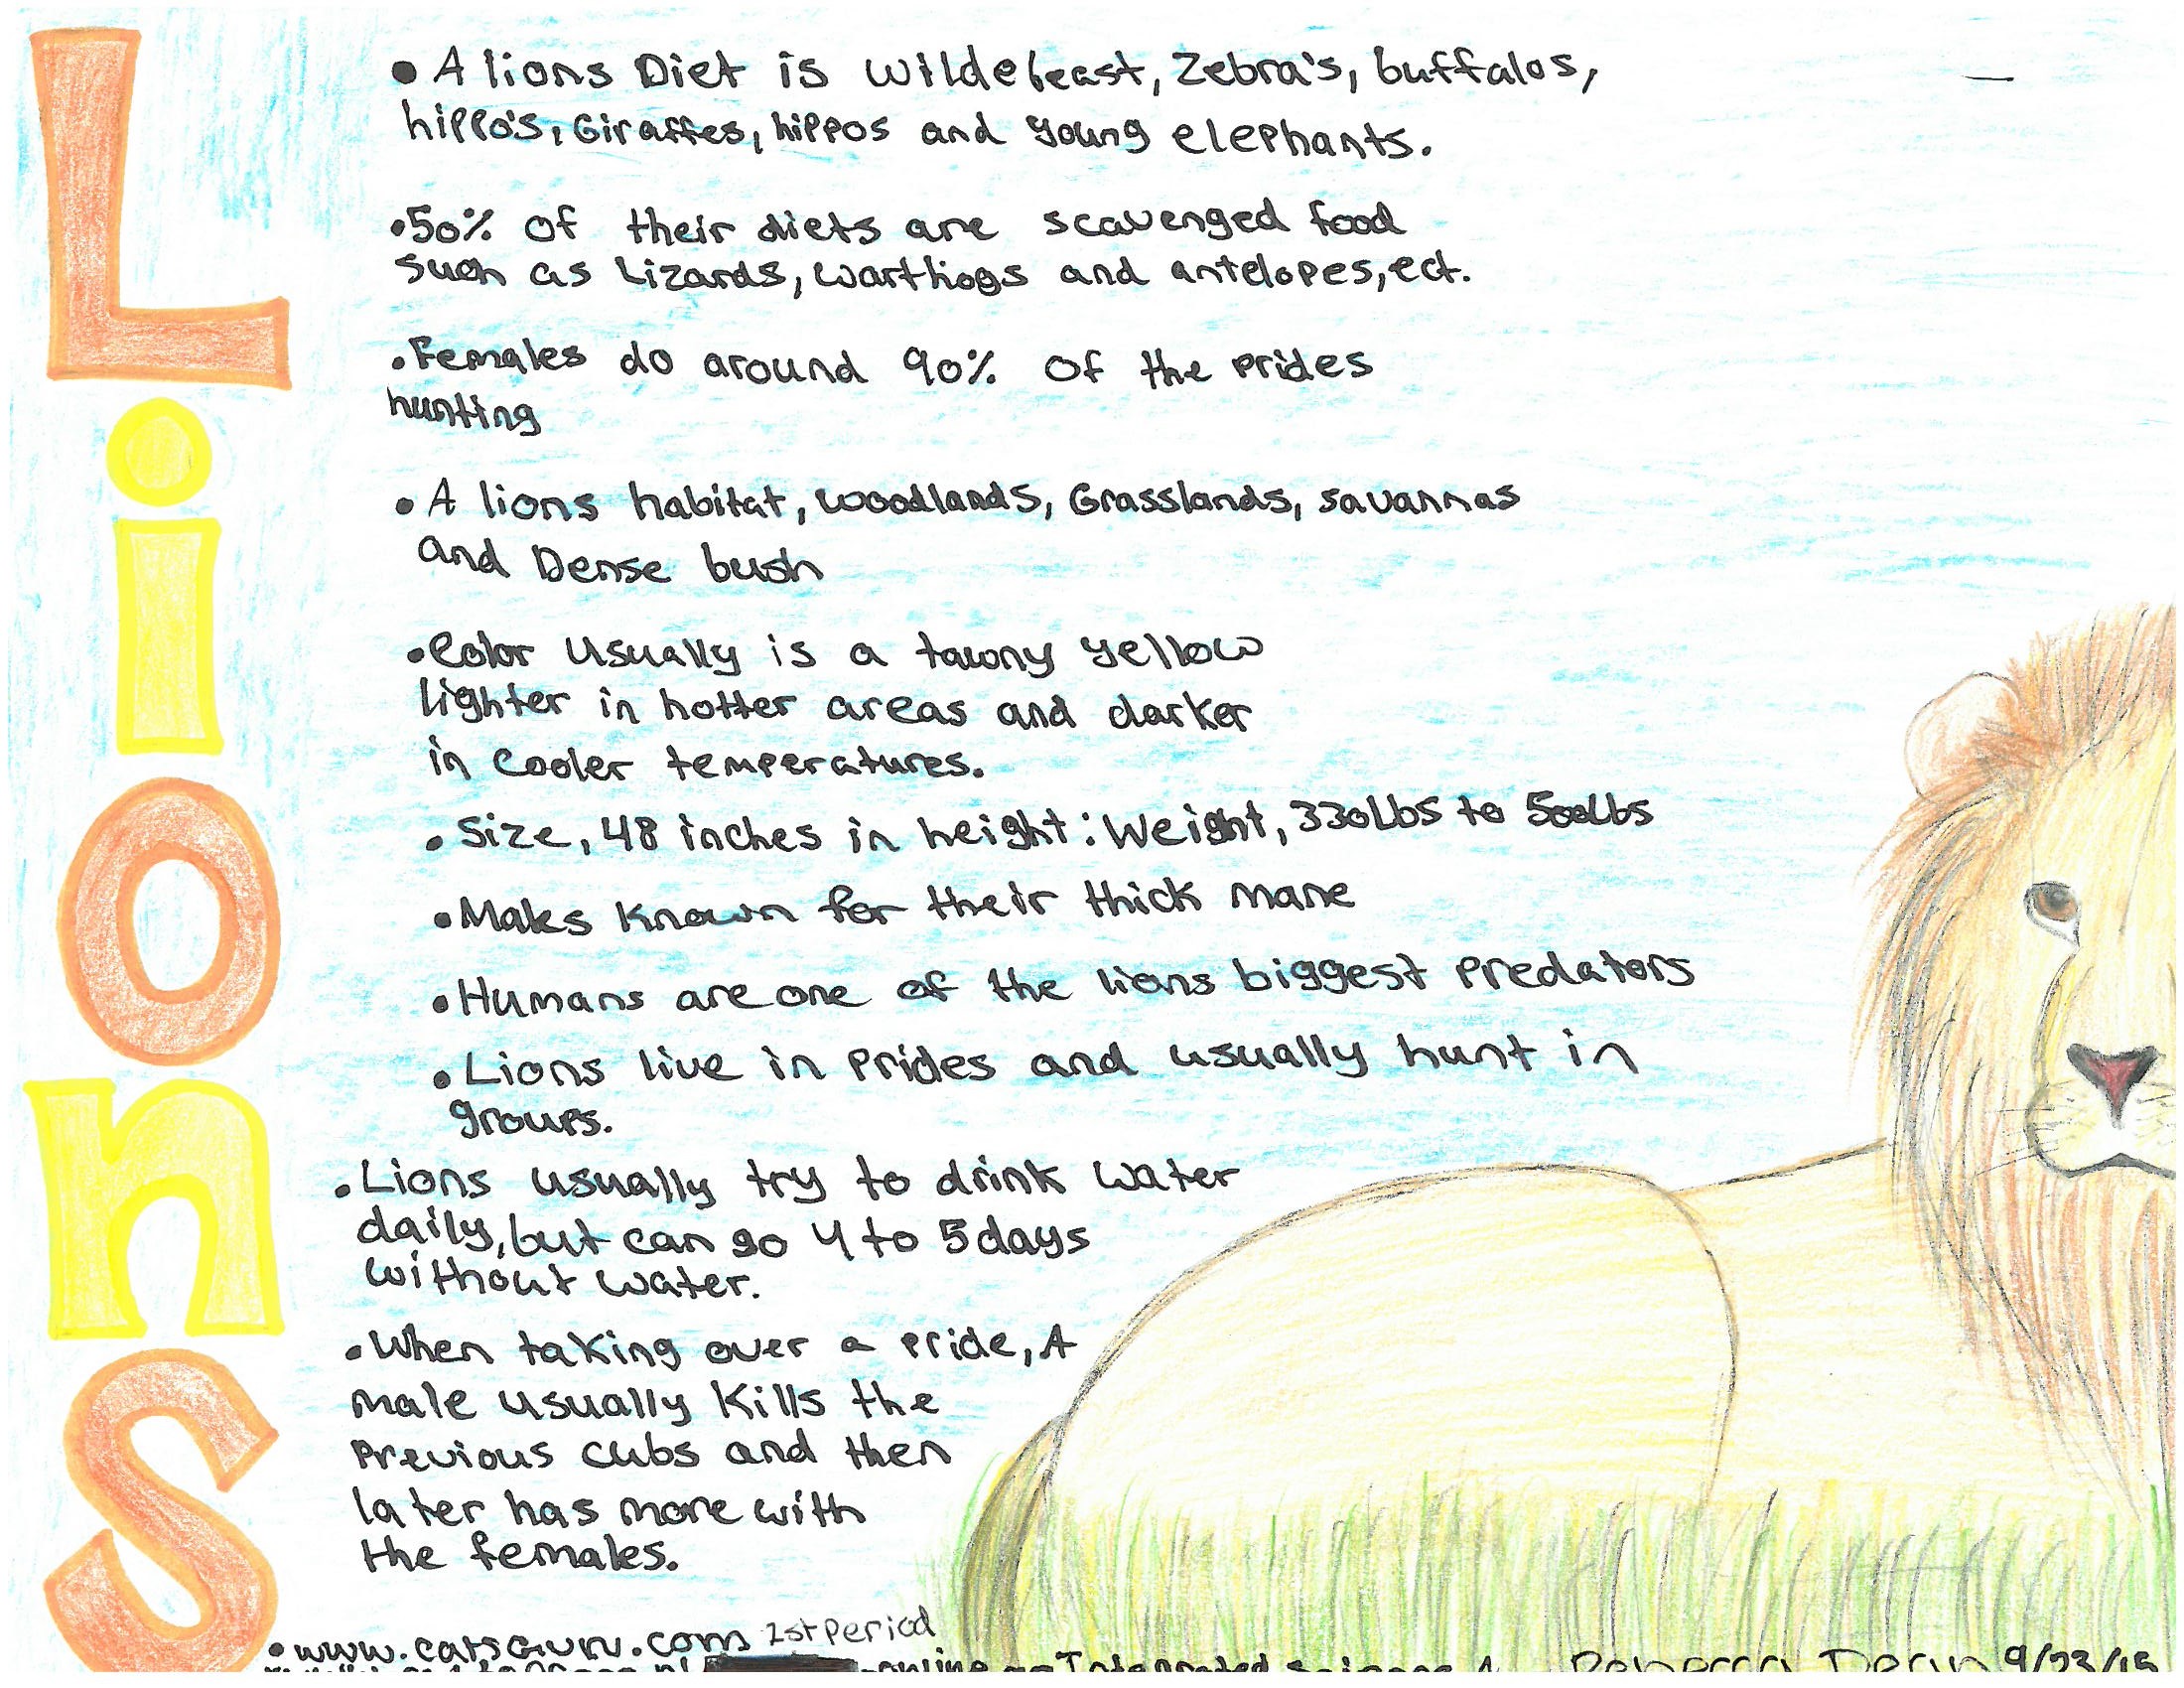 Lions
• A lions Diet is wildebeast, Zebra's, buffalos,
hippo's, Giraffes, hippos and young elephants.
• 50% of their diets are scavenged food
such as Lizards, warthogs and antelopes, ect.
• Females do around 90% of the prides
hunting
• A lions habitat, woodlands, Grasslands, savannas
and Dense bush
• Color usually is a tawny yellow
lighter in hotter areas and darker
in cooler temperatures.
• Size, 48 inches in height: Weight, 330Lbs to 500Lbs
• Males known for their thick mane
• Humans are one of the lions biggest predators
• Lions live in prides and usually hunt in
groups.
• Lions usually try to drink water
daily, but can go 4 to 5 days
without water.
• When taking over a pride, A
male usually kills the
previous cubs and then
later has more with
the females.
• www.catsGuru.com 1st Period
online Integrated Science Rebecca Dean 9/23/15